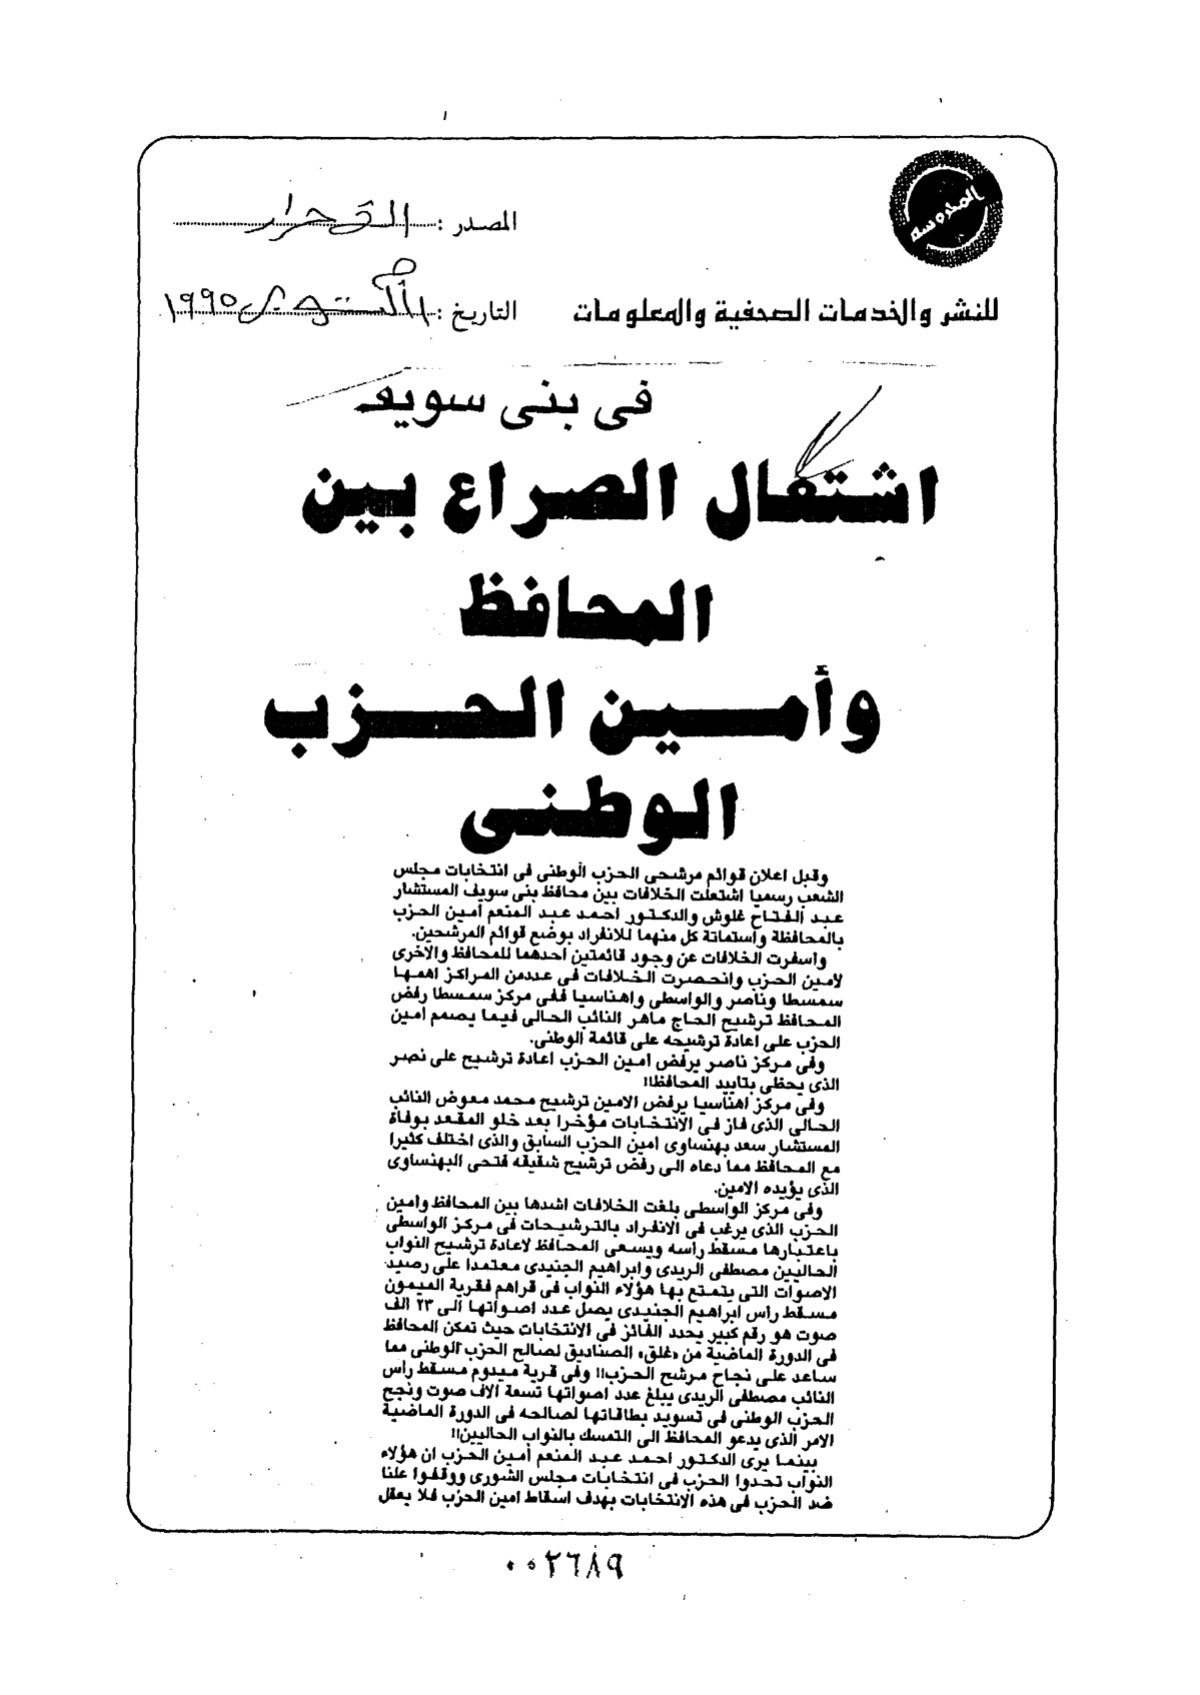 المحروسة
المصدر :
للنشر والخدمات الصحفية والمعلومات
التاريخ : أكتوبر ١٩٩٥
فى بنى سويف
اشتعال الصراع بين
المحافظ
وأمين الحزب
الوطنى
وقبل اعلان قوائم مرشحى الحزب الوطنى فى انتخابات مجلس
الشعب رسميا اشتعلت الخلافات بين محافظ بنى سويف المستشار
عبد الفتاح غلوش والدكتور احمد عبد المنعم أمين الحزب
بالمحافظة واستماتة كل منهما للانفراد بوضع قوائم المرشحين.
واسفرت الخلافات عن وجود قائمتين احدهما للمحافظ والاخرى
لامين الحزب وانحصرت الخلافات فى عددمن المراكز اهمها
سمسطا وناصر والواسطى واهناسيا ففى مركز سمسطا رفض
المحافظ ترشيح الحاج ماهر النائب الحالى فيما يصمم امين
الحزب على اعادة ترشيحه على قائمة الوطنى.
وفى مركز ناصر يرفض امين الحزب اعادة ترشيح على نصر
الذى يحظى بتاييد المحافظ!!
وفى مركز اهناسيا يرفض الامين ترشيح محمد معوض النائب
الحالى الذى فاز فى الانتخابات مؤخرا بعد خلو المقعد بوفاة
المستشار سعد بهنساوى امين الحزب السابق والذى اختلف كثيرا
مع المحافظ مما دعاه الى رفض ترشيح شقيقه فتحى البهنساوى
الذى يؤيده الامين.
وفى مركز الواسطى بلغت الخلافات اشدها بين المحافظ وامين
الحزب الذى يرغب فى الانفراد بالترشيحات فى مركز الواسطى
باعتبارها مسقط رأسه ويسعى المحافظ لاعادة ترشيح النواب
الحاليين مصطفى الريدى وابراهيم الجنيدى معتمدا على رصيد
الاصوات التى يتمتع بها هؤلاء النواب فى قراهم فقرية الميمون
مسقط راس ابراهيم الجنيدى يصل عدد اصواتها الى ٢٣ الف
صوت هو رقم كبير يحدد الفائز فى الانتخابات حيث تمكن المحافظ
فى الدورة الماضية من «غلق» الصناديق لصالح الحزب الوطنى مما
ساعد على نجاح مرشح الحزب!! وفى قرية ميدوم مسقط راس
النائب مصطفى الريدى يبلغ عدد اصواتها تسعة الاف صوت ونجح
الحزب الوطنى فى تسويد بطاقاتها لصالحه فى الدورة الماضية
الامر الذى يدعو المحافظ الى التمسك بالنواب الحاليين!!
بينما يرى الدكتور احمد عبد المنعم أمين الحزب ان هؤلاء
النواب تحدوا الحزب فى انتخابات مجلس الشورى ووقفوا علنا
ضد الحزب فى هذه الانتخابات بهدف اسقاط امين الحزب فلا يعقل
٠٠٢٦٨٩